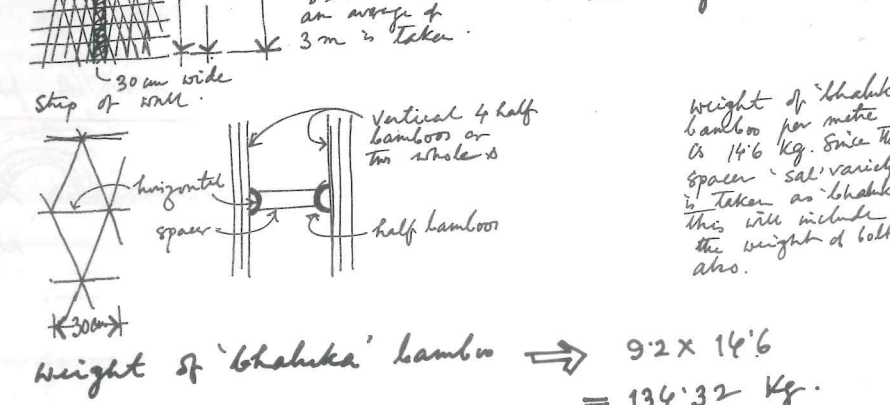 an average of
3 m is taken.
30 cm wide
strip of wall.
vertical 4 half
bamboos or
two wholes
horizontal
spacer
half bamboos
30cm
weight of 'bhaluk
bamboo per metre
is 14.6 kg. Since th
spacer 'sal' variet
is taken as 'bhaluk
this will include
the weight of bolt
also.
weight of 'bhaluka' bamboo ⇒ 9.2 x 14.6
= 134.32 Kg.